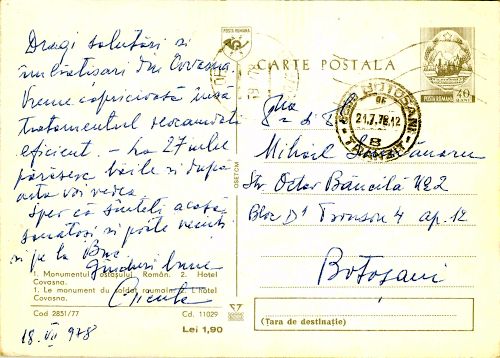 Dragi salutări și
îmbrățișări din Covasna.
Vreme capricioasă însă
tratamentul recomandat
eficient - La 27 iulie
părăsesc băile și după
asta voi vedea
Sper că sînteți acasă
sănătoși și poate veniți
și pe la Buc.
Gînduri bune
18 VII 978
1. Monumentul ostașului Român. 2. Hotel
Covasna.
1. Le monument du soldat roumain. 2. L'hotel
Covasna.
Cod 2851/77
Cd. 11029
Lei 1,90
POSTA ROMANA
CARTE POSTALA
POSTA ROMANA
40
BOTOSANI
21.7.78.12
TRANZIT
Mihail
Str. Octav Băncilă
Bloc D1 Tronson 4 ap. 12
Botoșani
(Țara de destinație)